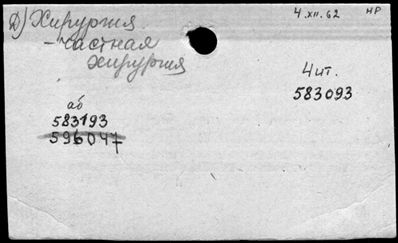 Д) Хирургия
- частная
хирургия
4.XII.62 НР
Чит.
583093
аб
583193
596047